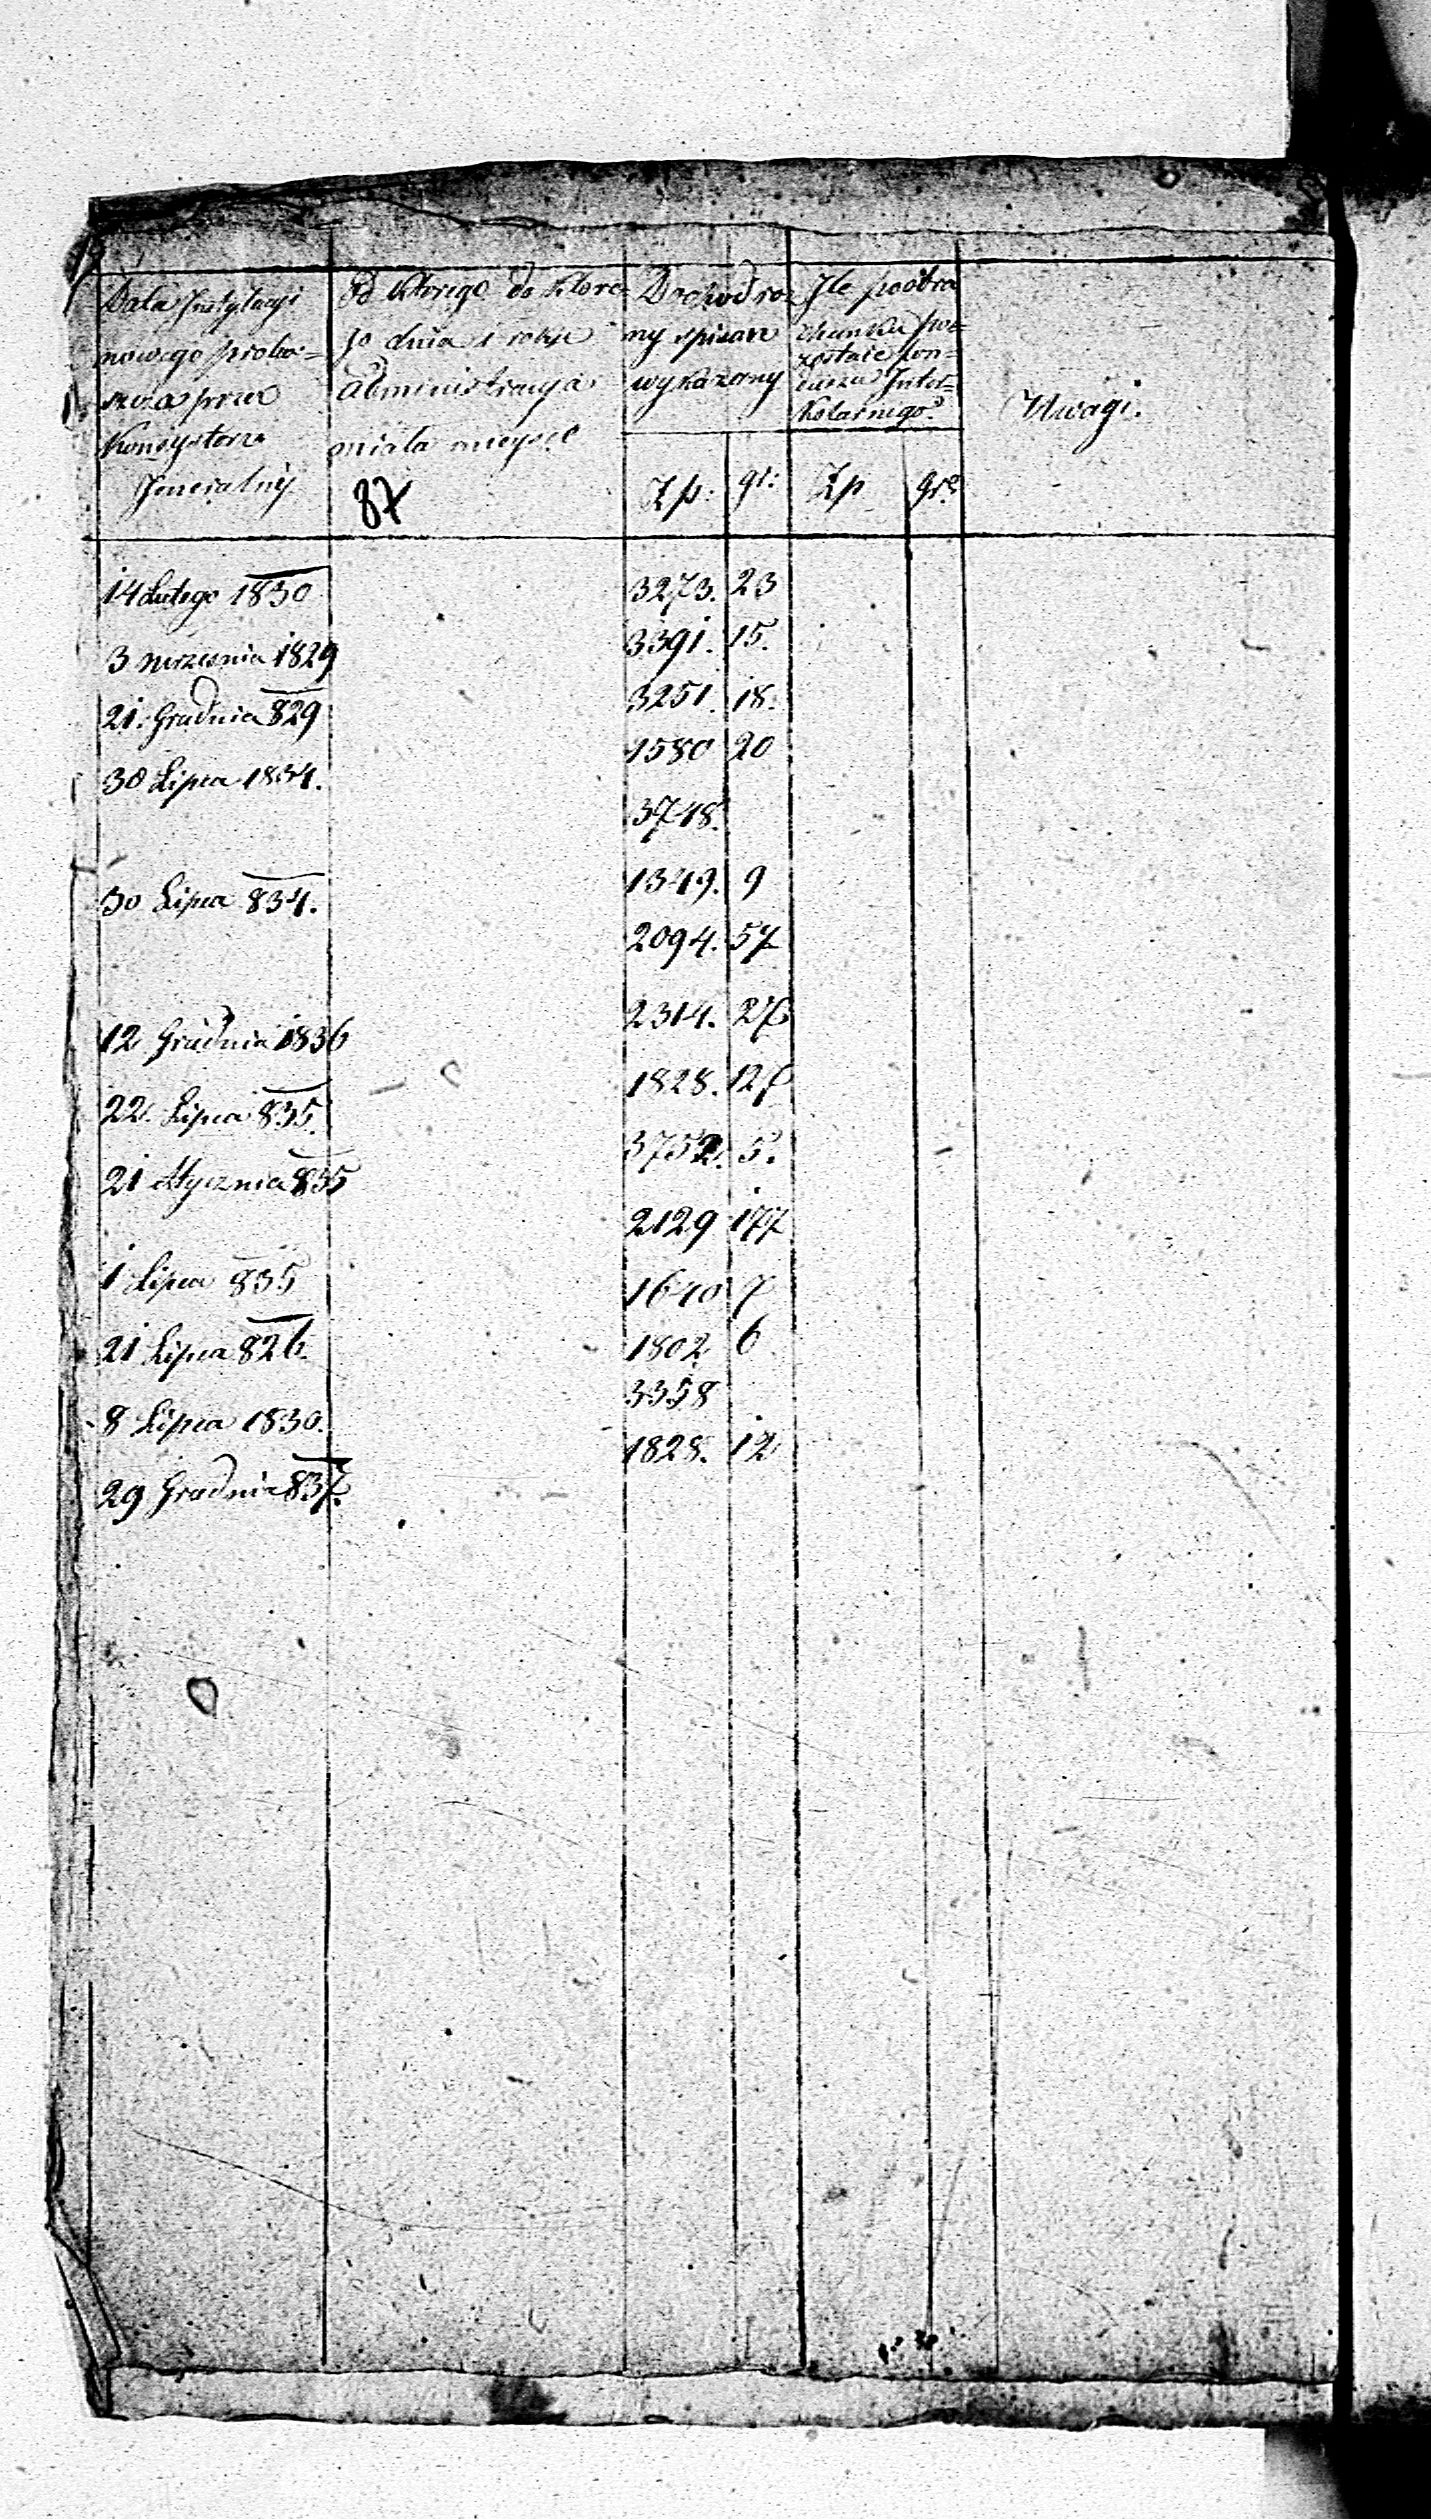 Data Instytucyi
nowego probo=
szcza przez
Konsystorz
Jeneralny
Od którego do które=
go dnia i roku
administracyja
miała mieysce
87
Dochod ro=
ny spisem
wykazany
Zp. gr:
Jle po obra
chunku po=
zostaie fun=
duszu Inter=
kalarnego?
Zp gr.
Uwagi.
14 Lutego 1830 3273. 23
3 września 1829 3391. 15.
21. Grudnia 829 3251. 18.
30 Lipca 1834. 1580 20
3748.
30 Lipca 834. 1349. 9
2094.
12 Grudnia 1836 2314.
22. Lipca 835. 1828.
21 Stycznia 835 3752. 5.
2129
1 Lipca 835 1640 7
21 Lipca 826. 1802 6
8 Lipca 1830. 3358
29 Grudnia 837. 1828. 12